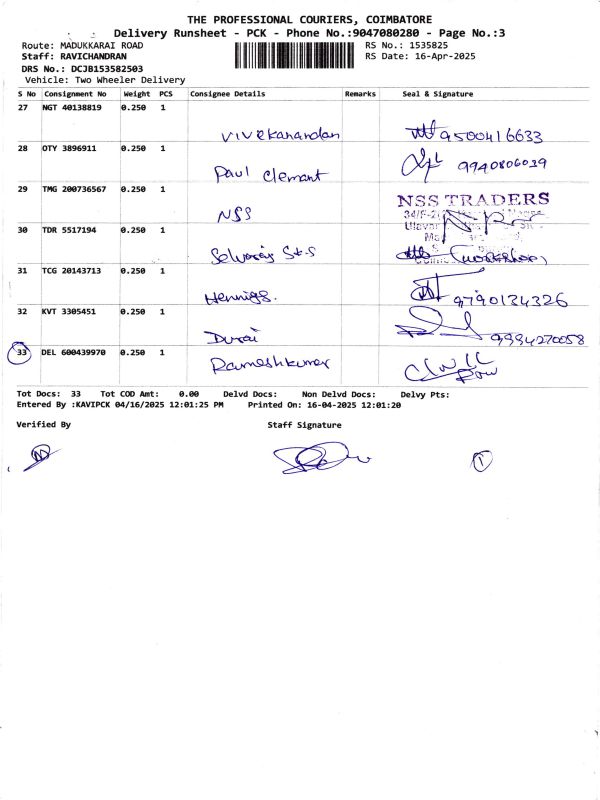 THE PROFESSIONAL COURIERS, COIMBATORE
Delivery Runsheet - PCK - Phone No.:9047080280 - Page No.:3
Route: MADUKKARAI ROAD
RS No.: 1535825
Staff: RAVICHANDRAN
RS Date: 16-Apr-2025
DRS No.: DCJB153582503
Vehicle: Two Wheeler Delivery
S No Consignment No Weight PCS Consignee Details Remarks Seal & Signature
27 NGT 40138819 0.250 1
Vivekanandan 9500416633
28 OTY 3896911 0.250 1
Paul Clemant 9940806039
29 TMG 200736567 0.250 1
NSS NSS TRADERS
30 TDR 5517194 0.250 1
Selvaraj
31 TCG 20143713 0.250 1
Hennigs. 9790134326
32 KVT 3305451 0.250 1
Durai 9994270058
33 DEL 600439970 0.250 1
Rameshkumar
Tot Docs: 33 Tot COD Amt: 0.00 Delvd Docs: Non Delvd Docs: Delvy Pts:
Entered By :KAVIPCK 04/16/2025 12:01:25 PM Printed On: 16-04-2025 12:01:20
Verified By Staff Signature